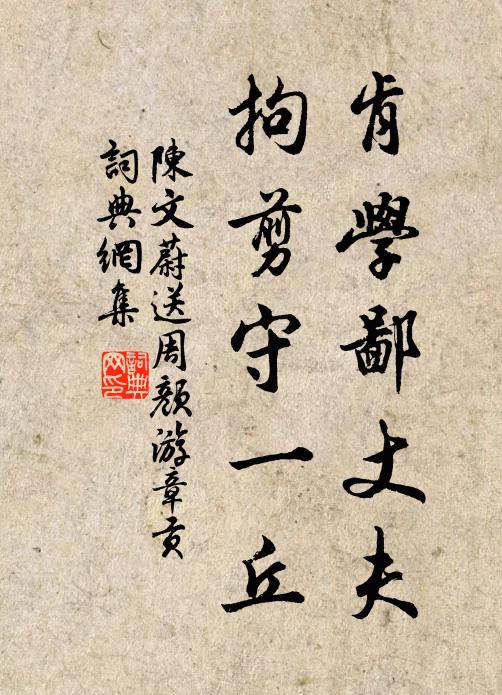 肯學鄙丈夫
拘剪守一丘
陳文蔚送周顏游章貢
詞典網集
詞典網印